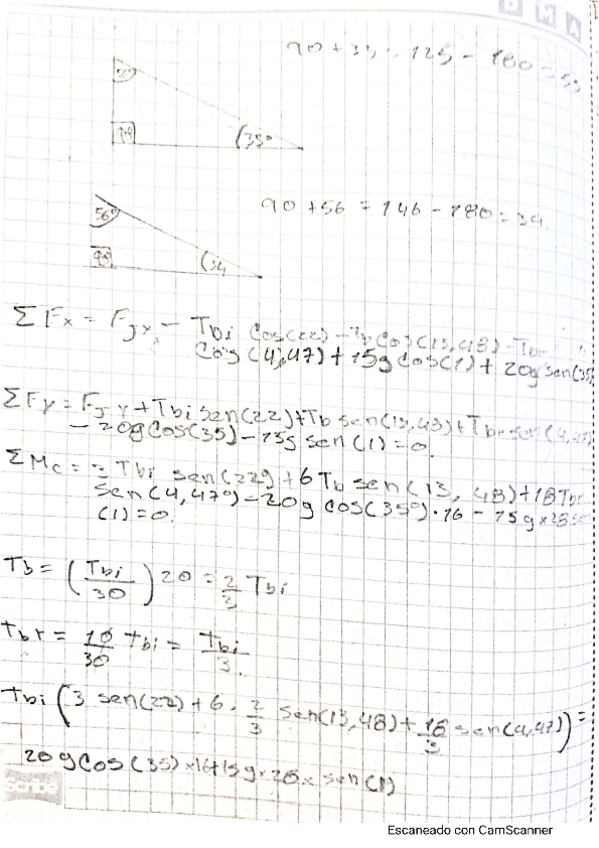 D M A
90 + 35 = 125 - 180 = 55
90°
35°
56°
90 + 56 = 146 - 180 = 34
90°
34
ΣFx = FJx - Tbi cos(22) - Tb cos(13,48) - Tbr
cos(4,47) + 15g cos(1) + 20g sen(35
ΣFy = FJy + Tbi sen(22) + Tb sen(13,48) + Tbr sen(4,47)
- 20g cos(35) - 15g sen(1) = 0.
ΣMc = 3 Tbi sen(22°) + 6 Tb sen(13,48) + 18 Tbr
sen(4,47°) - 20g cos(35°) · 16 - 15g x 28 sen
(1) = 0.
Tb = (Tbi/30) 20 = 2/3 Tbi
tbr = 10/30 tbi = Tbi/3.
tbi (3 sen(22) + 6 . 2/3 sen(13,48) + 18/3 sen(4,47)) =
20g cos(35) x 16 + 15g x 28 x sen(1)
Scribe
Escaneado con CamScanner